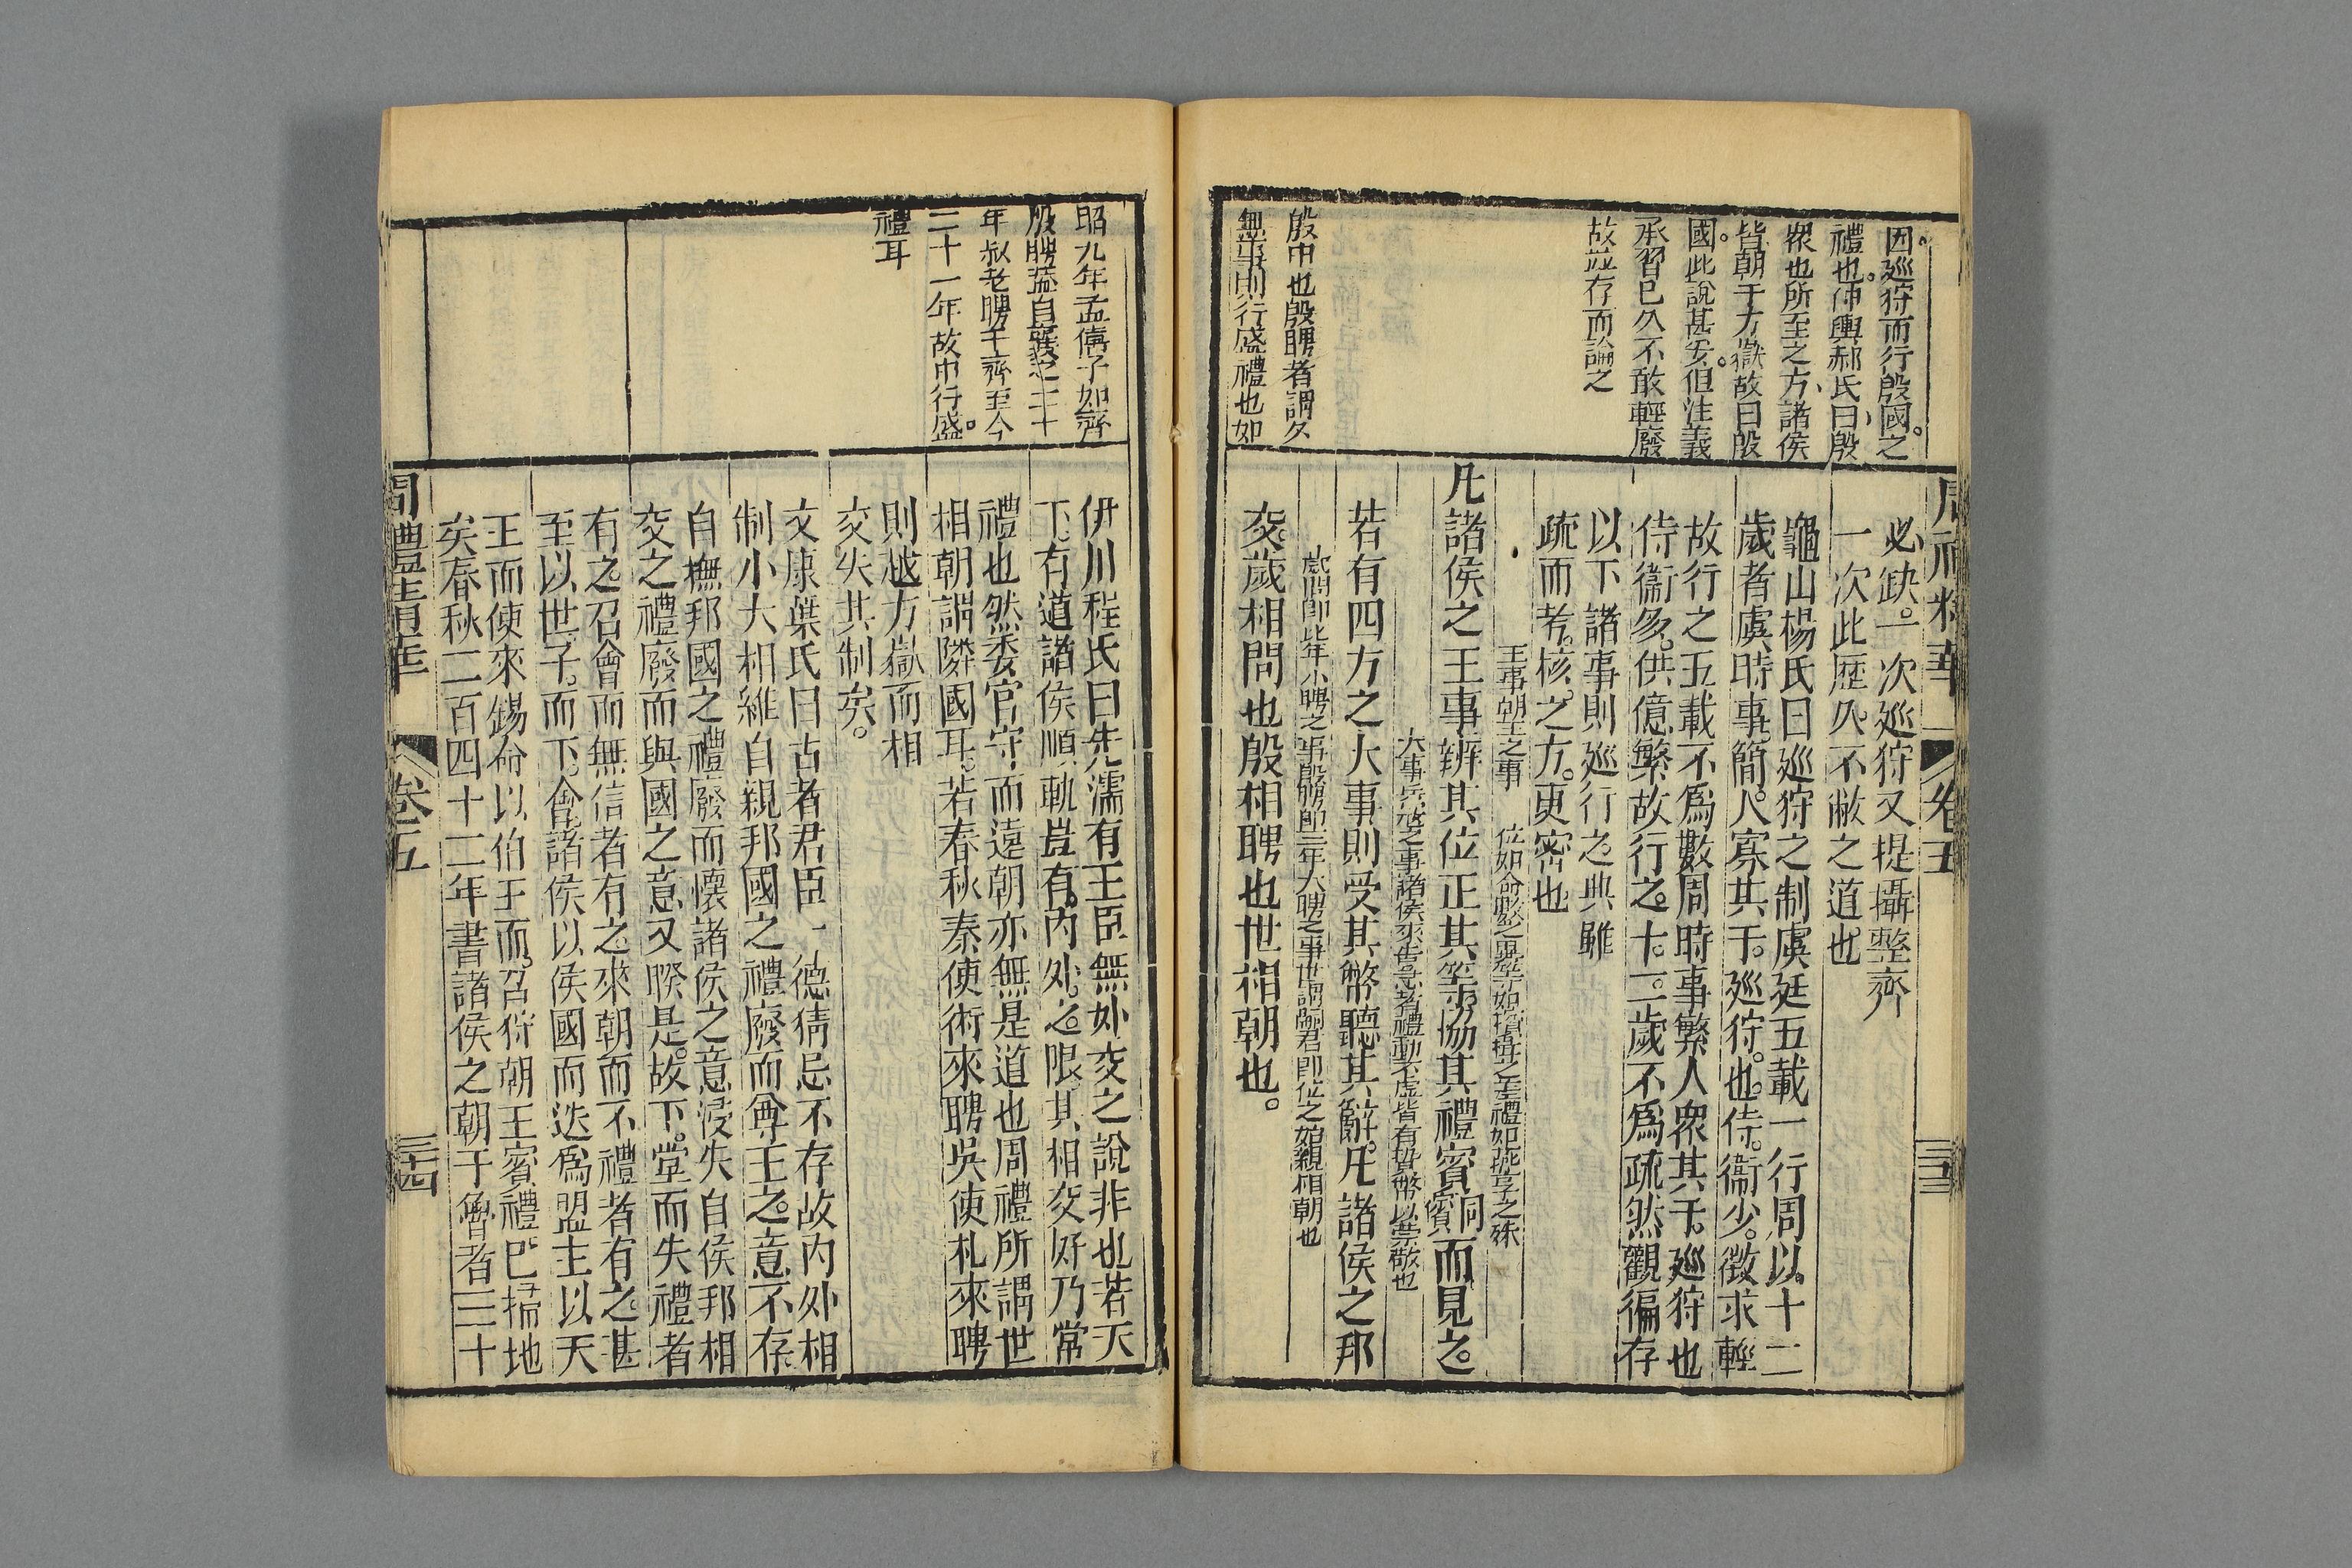 因廵狩而行殷國之
禮也仲輿郝氏曰殷
衆也所至之方諸侯
皆朝于方嶽故曰殷
國此說甚妥但注義
承習已久不敢輕廢
故並存而論之
殷中也殷聘者謂久
無事則行盛禮也如
周禮精華
卷五
三十三
必缺一次廵狩又提攝整齊
一次此歷久不敝之道也
龜山楊氏曰廵狩之制虞廷五載一行周以十二
歲者虞時事簡人寡其于廵狩也侍衞少徵求輕
故行之五載不爲數周時事繁人衆其于廵狩也
侍衞多供億繁故行之十二歲不爲疏然觀徧存
以下諸事則廵行之典雖
疏而考核之方更密也
王事朝王之事
凡諸侯之王事辨其位正其等協其禮賓而見之
大事兵戎之事諸侯來告急者禮動不虛皆有贄幣以崇敬也
若有四方之大事則受其幣聽其辭凡諸侯之邦
歲問即比年小聘之事殷聘即三年大聘之事世謂嗣君即位之始親相朝也
交歲相問也殷相聘也世相朝也
昭九年孟僖子如齊
殷聘蓋自襄之二十
年叔老聘于齊至今
二十一年故中行盛
禮耳
伊川程氏曰先濡有王臣無外交之說非也若天
下有道諸侯順軌豈有內外之限其相交好乃常
禮也然委官守而遠朝亦無是道也周禮所謂世
相朝謂隣國耳若春秋秦使術來聘吳使札來聘
則越方嶽而相
交失其制矣
文康葉氏曰古者君臣一德猜忌不存故內外相
制小大相維自親邦國之禮廢而尊王之意不存
自撫邦國之禮廢而懷諸侯之意浸失自侯邦相
交之禮廢而與國之意又睽是故下堂而失禮者
有之召會而無信者有之來朝而不禮者有之甚
至以世子而下會諸侯以侯國而迭爲盟主以天
王而使來錫命以伯王而召狩朝王賓禮已掃地
矣春秋二百四十二年書諸侯之朝于魯者三十
周禮精華
卷五
三十四